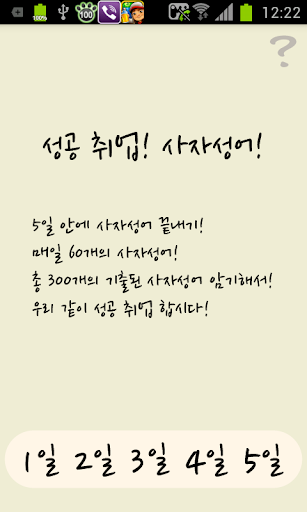 100 12:22
?
성공 취업! 사자성어!
5일 안에 사자성어 끝내기!
매일 60개의 사자성어!
총 300개의 기출된 사자성어 암기해서!
우리 같이 성공 취업 합시다!
1일 2일 3일 4일 5일